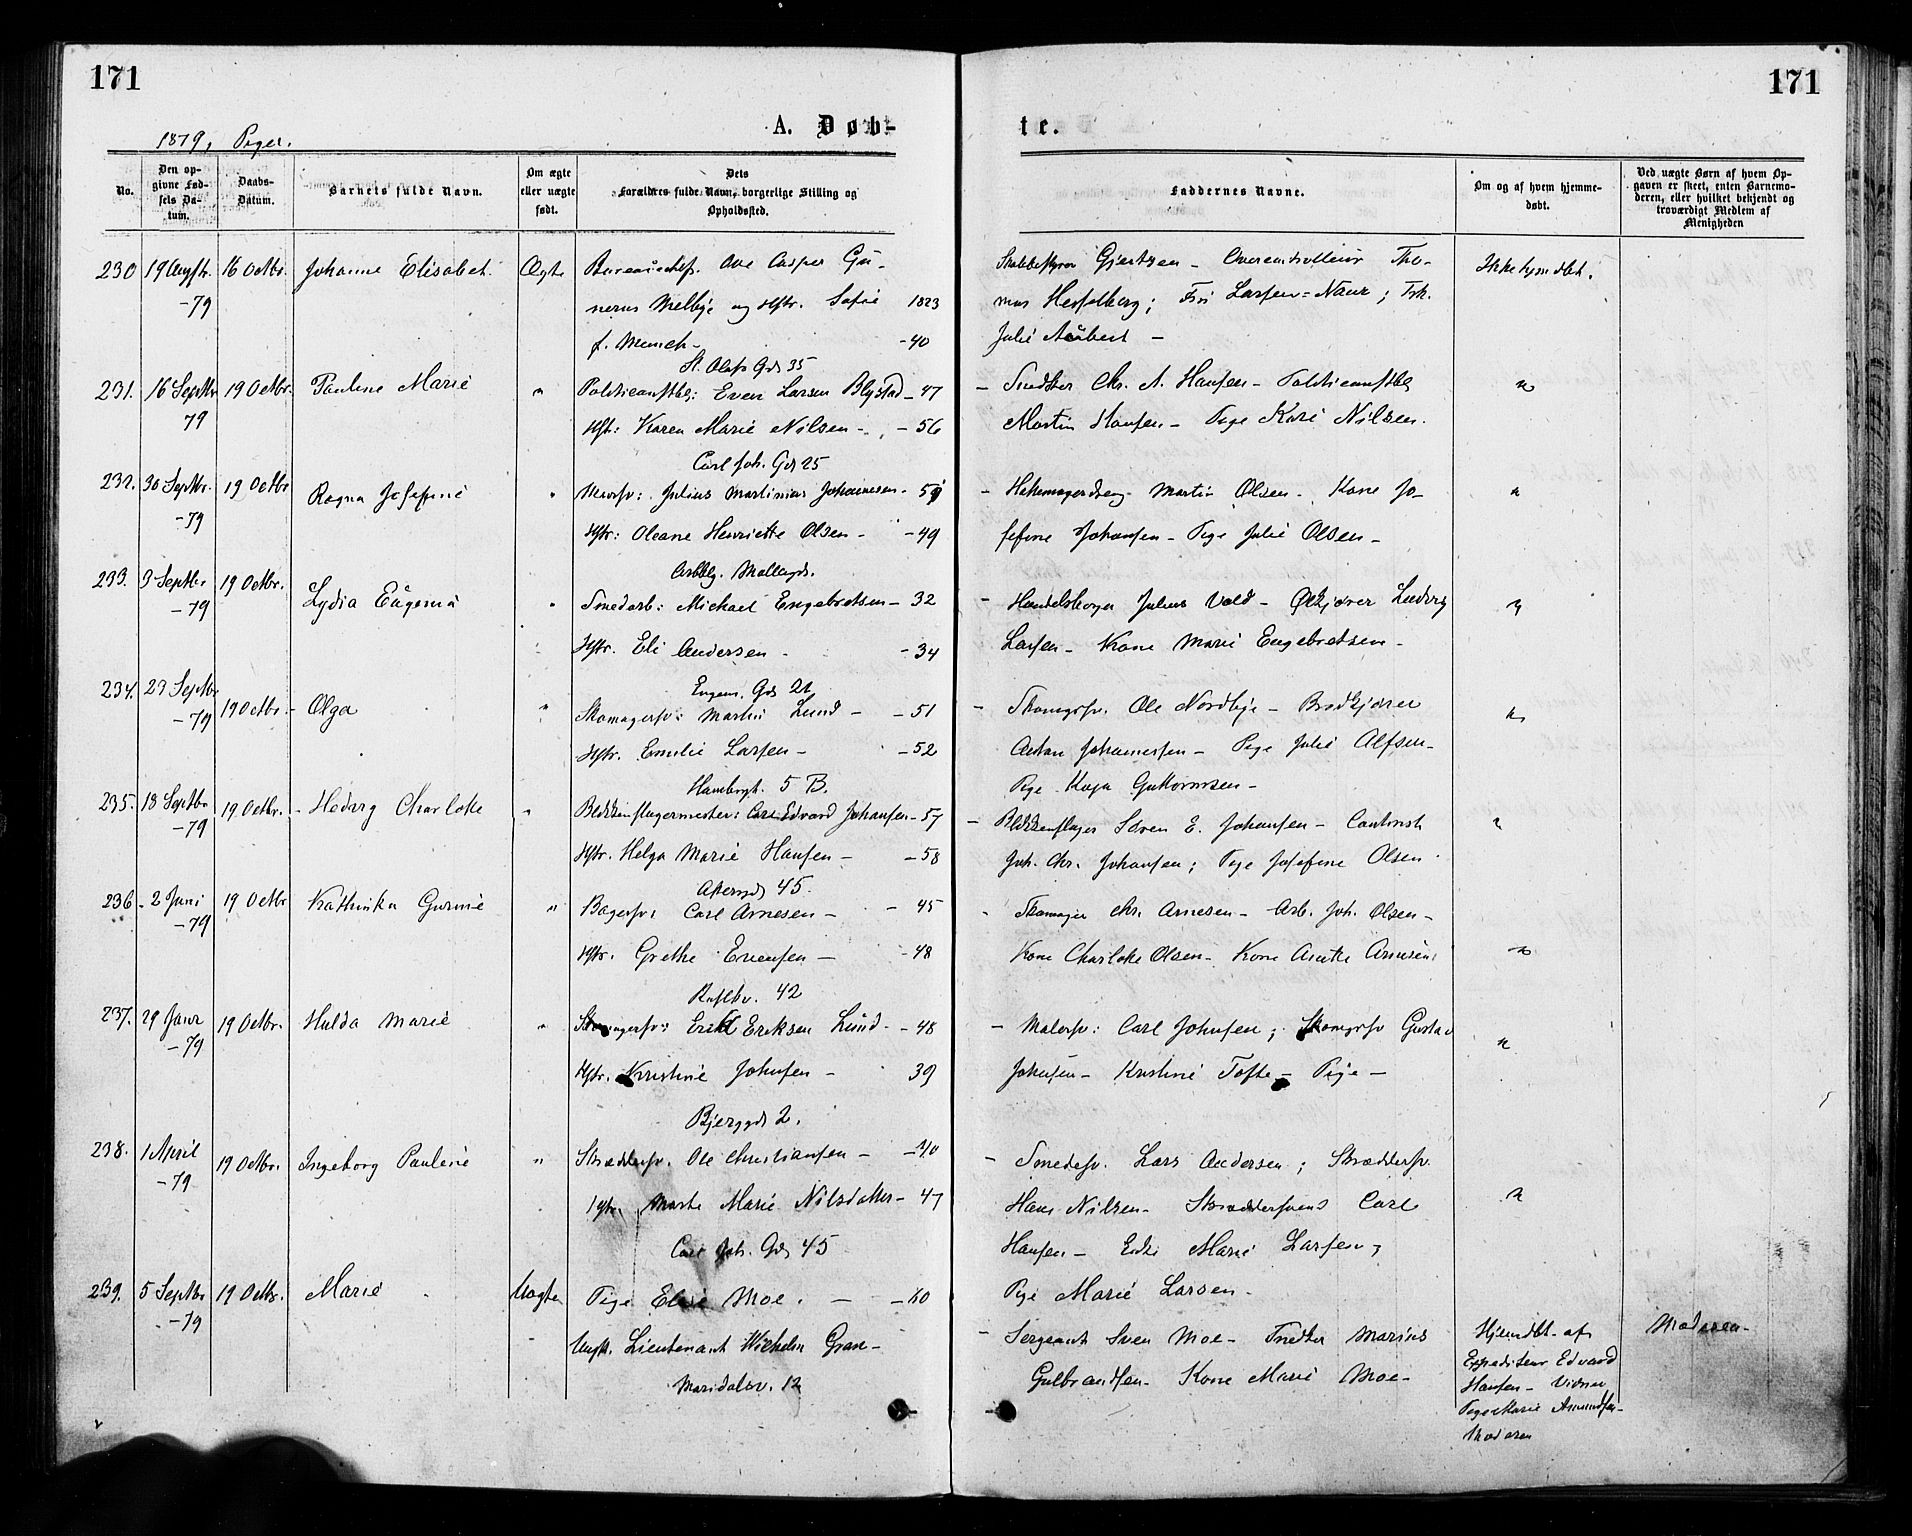 171
171
A. Døb-
te.
1879, Piger.
No.
Den op-
givne Fød-
sels Da-
tum.
Daabs-
Datum.
Barnets fulde Navn.
Om ægte
eller uægte
født.
Dets
Forældres fulde Navn, borgerlige Stilling og
Opholdssted.
Faddernes Navne.
Om og af hvem hjemme-
døbt.
Ved uægte Børn af hvem Op-
gaven er skeet, enten Barnemo-
deren, eller hvilket bekjendt og
troværdigt Medlem af
Menigheden
230 19 Augstr. 16 Octbr. Johanne Elisabet. Ægte Bureauchef. Ove Casper Gu-
-79 nerus Melbye og Hstr. Sofie 1823
f. Munch - -40
Gjertsen - Overcontrolleur Tho-
mas Hesselberg; Frk. Julie Aubert -
Ikke hjemdbt.
St. Olafs Gd 35
231. 16 Septbr 19 Octbr. Pauline Marie " Politiconstbl: Even Larsen Blystad - 47
79 Hst: Karen Marie Nilsen - - 56
- Snedker Chr. A. Hansen - Politiconstbl "
Martin Hansen - Pige Kari Nilsen.
Carl Joh. Gd 25
232. 30 Septbr. 19 Octbr Ragna Josefine " Murersv: Julius Martinius Johannesen -
-79 Hstr: Oleane Henriette Olsen - - 49
- Martin Olsen - Kone Jo- "
sefine Johansen - Pige Julie Olsen -
Møllergd.
233. 3 Septbr 19 Octbr. Lydia Eugenie " Smedarb: Michael Engebretsen - 32
-79 Hstr. Eli Andersen - - 34
- Handelsborger Julius Vold - Ølkjører Ludvig "
Larsen - Kone Marie Engebretsen -
Eugeni. Gd 21
234. 29 Septbr 19 Octbr. - Olga " Skomagersv: Martin Lund - - 51
-79 Hstr. Emilie Larsen - - 52
- Skomgrsv. Ole Nordbye - Brødkjører "
Anton Johannessen - Pige Julie Alfsen -
Pige Kaja Guttormsen -
Hambergt. 5 B.
235. 18 Septbr 19 Octbr. - Hedvig Charlotte " Blikkenslagermester: Carl Edvard Johansen - 57
-79 Hstr. Helga Marie Hansen - - 58
- Blikkenslager Søren E. Johansen - Contorist "
Joh. Chr. Johansen; Pige Josefine Olsen -
Akersgd 45.
236. 2 Juni 19 Octbr Kathinka Gurine " Bagersv: Carl Arnesen - - 45
-79 Hstr. Grethe Evensen - - 48
- Skomager Chr. Arnesen - Arb. Joh. Olsen -
Kone Charlotte Olsen - Kone Anette Arnesen "
42
237. 29 Janr 19 Octbr. Hulda Marie " Skomagersv: Erik Eriksen Lund - - 48
-79 Hstr. Kristine Johnsen - 39
- Malersv: Carl Johnsen; Skomgrsv Gustav "
Johnsen - Kristine Tofte - Pige -
Bjerggd 2.
238. 1 April 19 Octbr. Ingeborg Pauline " Skræddersv. Ole Christiansen - - 40
-79 Hstr. Marte Marie Nilsdatter - 47
- Smedesv. Lars Andersen; Skræddersv.
Hans Nilsen - Skræddersvend Carl "
Hansen - Marie Larsen;
Pige Marie Larsen -
Carl Joh. Gd 45
239. 5 Septbr 19 Octbr. Marie Uægte Pige Elise Moe. - - 60
-79 Ungk. Lieutenant Wilhelm Gran -
Maridalsv. 12
- Sergeant Sven Moe - Snedker Marius
Gulbrandsen - Kone Marie Moe -
Hjemdbt. af
Expediteur Edvard
Hansen - Vidner
Pige Marie Amundsen -
Moderen
Moderen -